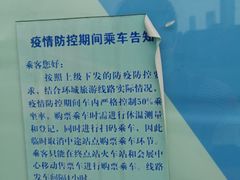 疫情防控期间乘车告知
乘客您好：
按照上级下发的防疫防控
求，结合环城旅游线路实际情况，
疫情防控期间车内严格控制50%乘
率，购票乘车时需进行体温测量
和登记，同时进行扫码乘车，因此
临时取消中途站点购票乘车环节。
乘客只能在终点站火车站和会展中
心移动售票车进行购票乘车。线路
发车间隔1小时